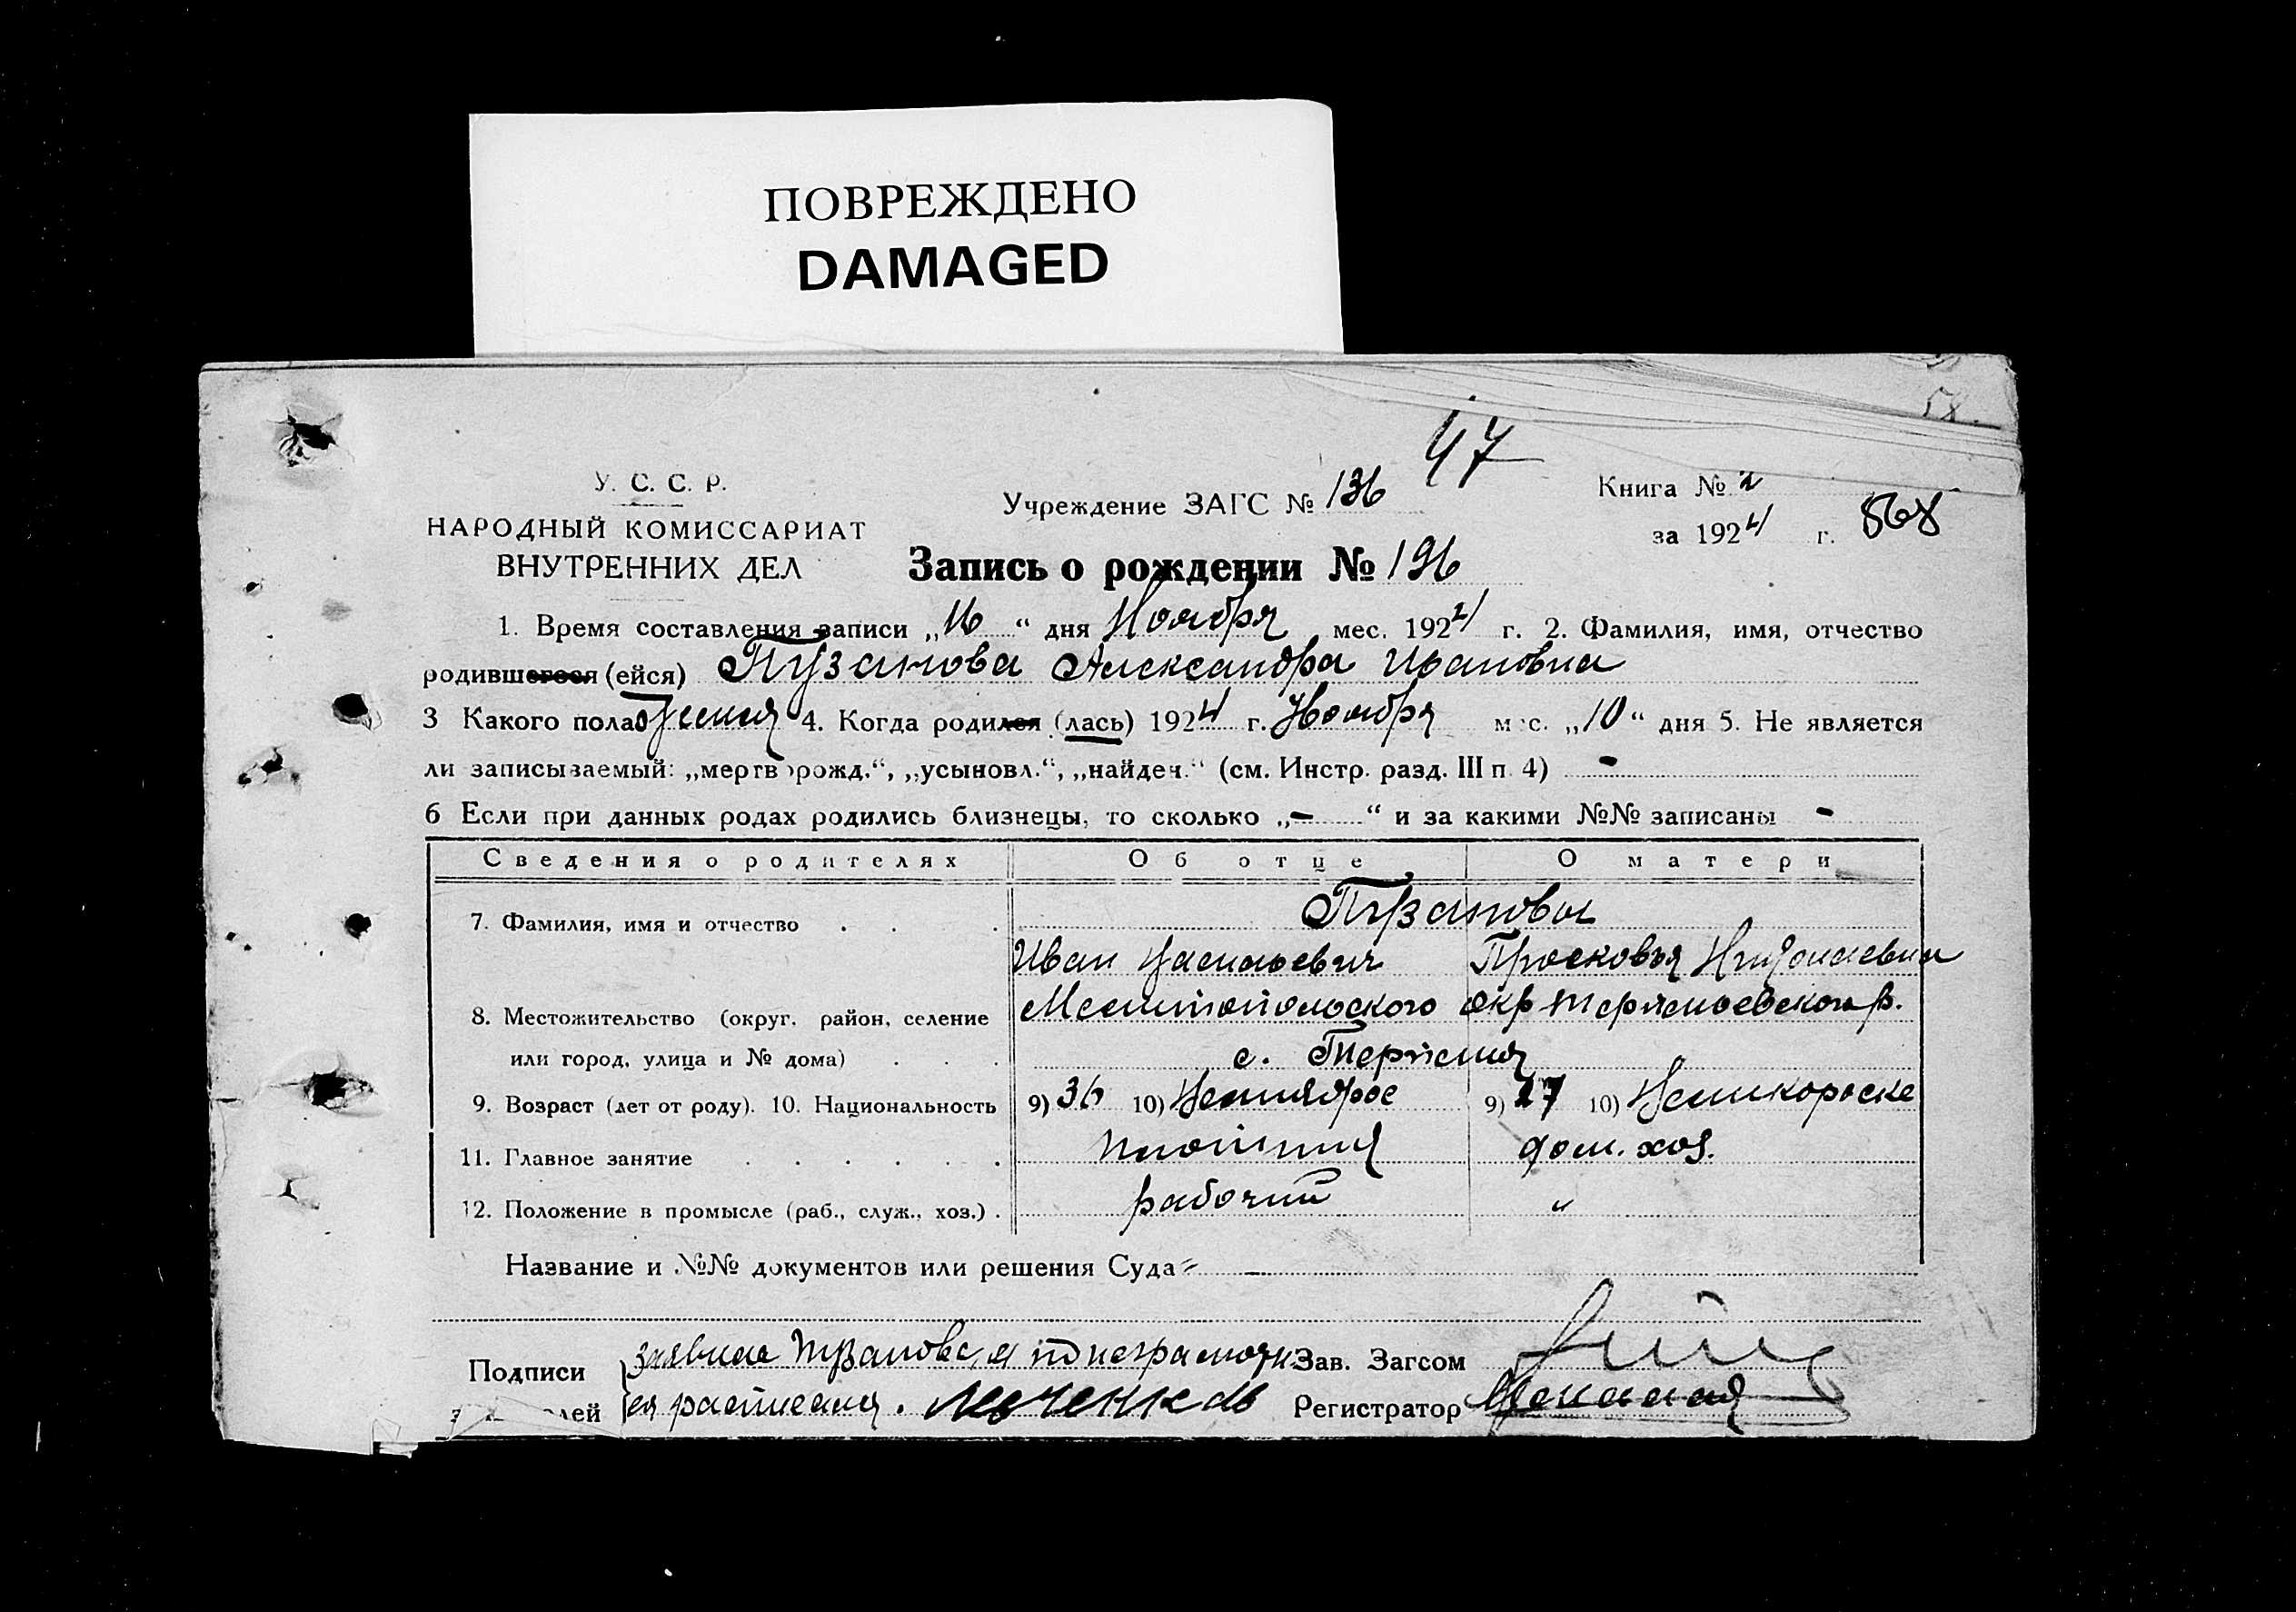 ПОВРЕЖДЕНО
DAMAGED
47
У. С. С. Р.
НАРОДНЫЙ КОМИССАРИАТ
ВНУТРЕННИХ ДЕЛ
Учреждение ЗАГС № 136
Книга № 2
за 1924 г. 868
Запись о рождении № 196
1. Время составления записи „16“ дня Ноября мес. 1924 г. 2. Фамилия, имя, отчество
родившегося (ейся) Пузанова Александра Ивановна
3 Какого пола женск 4. Когда родился (лась) 1924 г. Ноября мес. „10“ дня 5. Не является
ли записываемый: „мертворожд.“, „усыновл.“, „найден.“ (см. Инстр. разд. III п. 4) -
6 Если при данных родах родились близнецы, то сколько „-“ и за какими №№ записаны -
Сведения о родителях Об отце О матери
7. Фамилия, имя и отчество Пузановы
Иван Васильевич Просковья
8. Местожительство (округ, район, селение Мелитопольского окр Терпеньевского р.
или город, улица и № дома) с. Терпения
9. Возраст (лет от роду). 10. Национальность 9) 36 10) 9) 27 10) Великороске
11. Главное занятие плотник дом. хоз.
12. Положение в промысле (раб., служ., хоз.) рабочий "
Название и №№ документов или решения Суда
Подписи заявила Пузанова, а по неграмотн Зав. Загсом
ея расписался. Регистратор